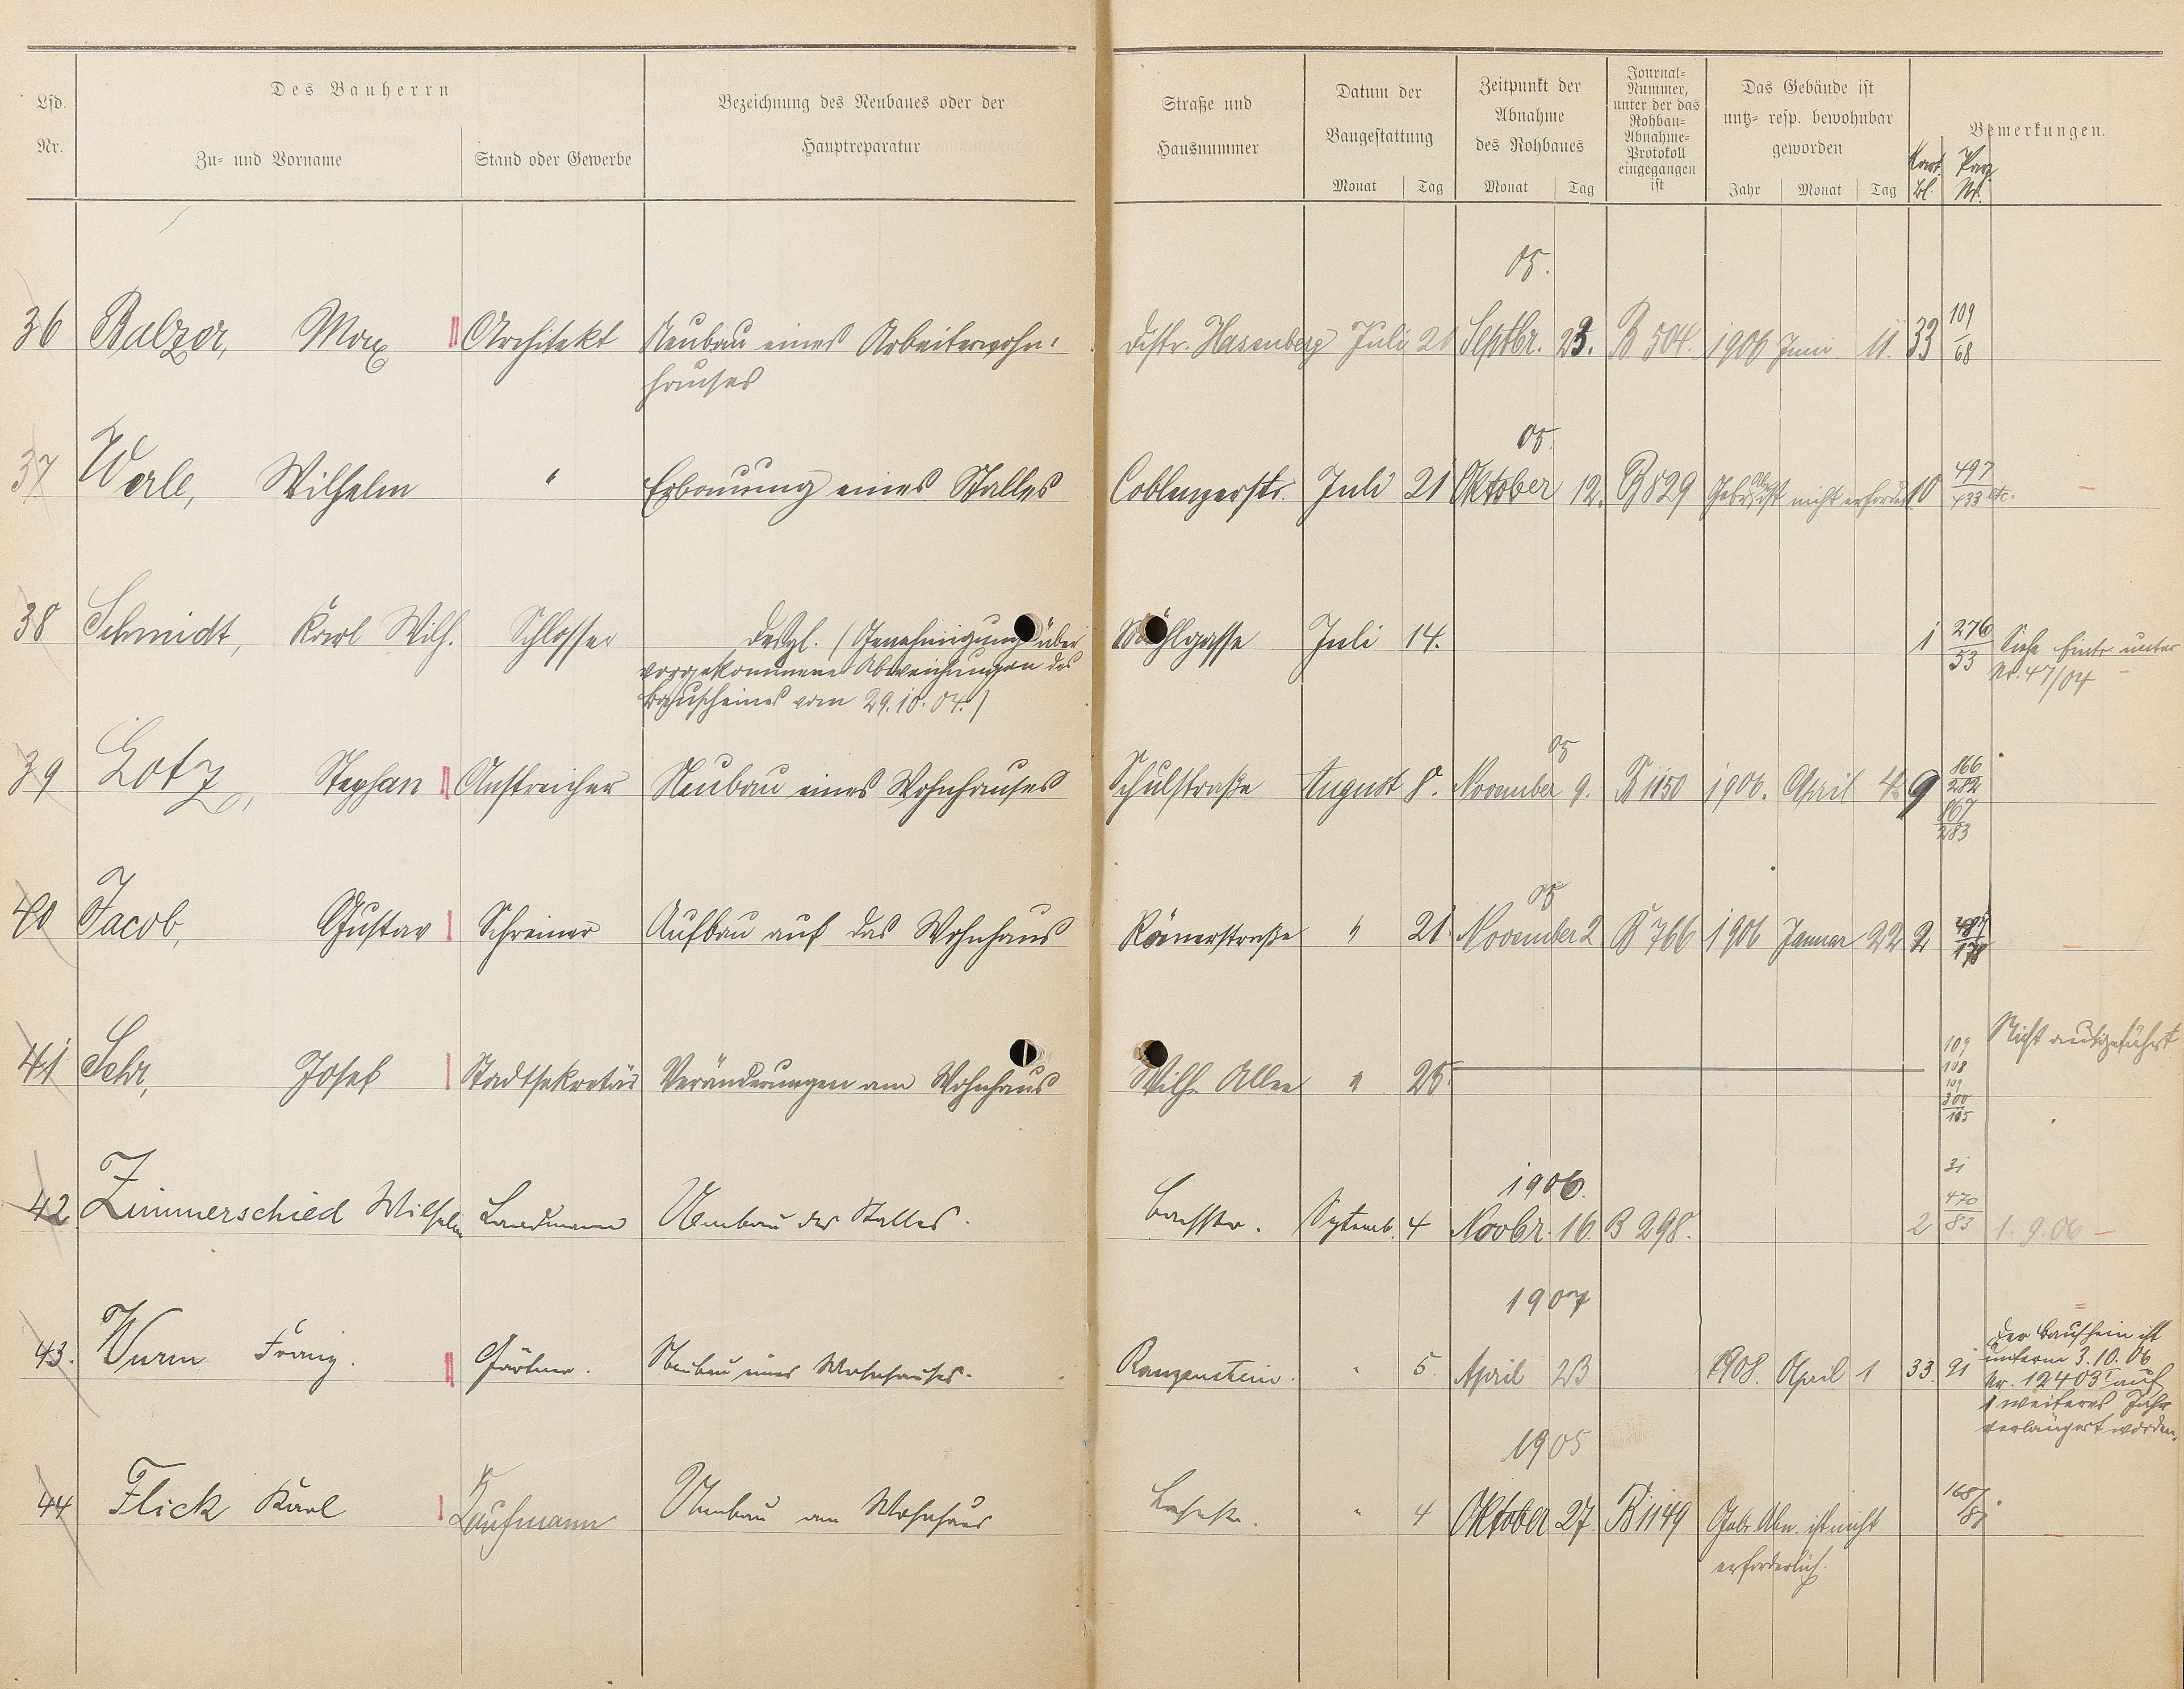 Lfd. Nr.
Des Bauherrn
Zu- und Vorname
Stand oder Gewerbe
Bezeichnung des Neubaues oder der
Hauptreparatur
Straße und
Hausnummer
Datum der
Baugestattung
Monat Tag
Zeitpunkt der
Abnahme
des Rohbaues
Monat Tag
Journal-
Nummer,
unter der das
Rohbau-
Abnahme-
Protokoll
eingegangen
ist
Das Gebäude ist
nutz- resp. bewohnbar
geworden
Jahr Monat Tag
Kart. Bl.
Parz. Nr.
Bemerkungen.
05.
36 Balzer, Max Architekt Neubau eines Arbeiterwohn- Distr. Hasenberg Juli 21 Septbr. 23. B 504. 1906 Juni 11. 33 109/68
hauses
05.
37 Werle, Wilhelm " Erbauung eines Stalles Coblenzerstr. Juli 21 Oktober 12. B 829 Gebr. Abn. ist nicht erford. 10 497/433 etc.
38 Schmidt, Karl Wilh. Schlosser desgl. (Genehmigung über Juli 14. 1 276/53 Siehe Eintr. unter
vorgekommene Abweichungen des Nr. 47/04
Bauscheines vom 29.10.04.)
05
39 Lotz, Stephan Anstreicher Neubau eines Wohnhauses Schulstraße August 8. November 9. B 1150 1906. April 4. 9 166/282
867/283
05
40 Jacob, Gustav Schreiner Aufbau auf das Wohnhaus Römerstraße " 21. November 2 B 766 1906 Januar 22 2 /178
Nicht ausgeführt
41 Sehr, Josef Stadtsekretär Veränderungen am Wohnhaus Wilh. Allee " 25. 109
108
109
300
105
1906.
31
42. Zimmerschied Wilhelm Landmann Umbau des Stalles. Bachstr. Septemb. 4 Novbr. 16. B 298. 2 470/83 1.9.06
1907
43. Wurm Franz. Gärtner. Neubau eines Wohnhauses. " 5. April 23 1908. April 1 33. 91 Der Bauschein ist
unterm 3.10.06
Nr. 12403 auf
1 weiteres Jahr
verlängert worden.
1905
44 Flick Karl Kaufmann Umbau am Wohnhaus " 4 Oktober 27. B 1149 Gebr. Abn. ist nicht
erforderlich.